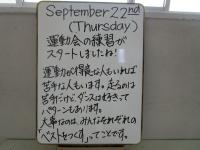 September 22nd
(Thursday)
運動会の練習が
スタートしましたね!
運動が得意な人もいれば
苦手な人もいます。走るのは
苦手だけど、ダンスは好きって
パターンもあります。
大事なのは、みんなそれぞれの
「ベストをつくす」ってことです。